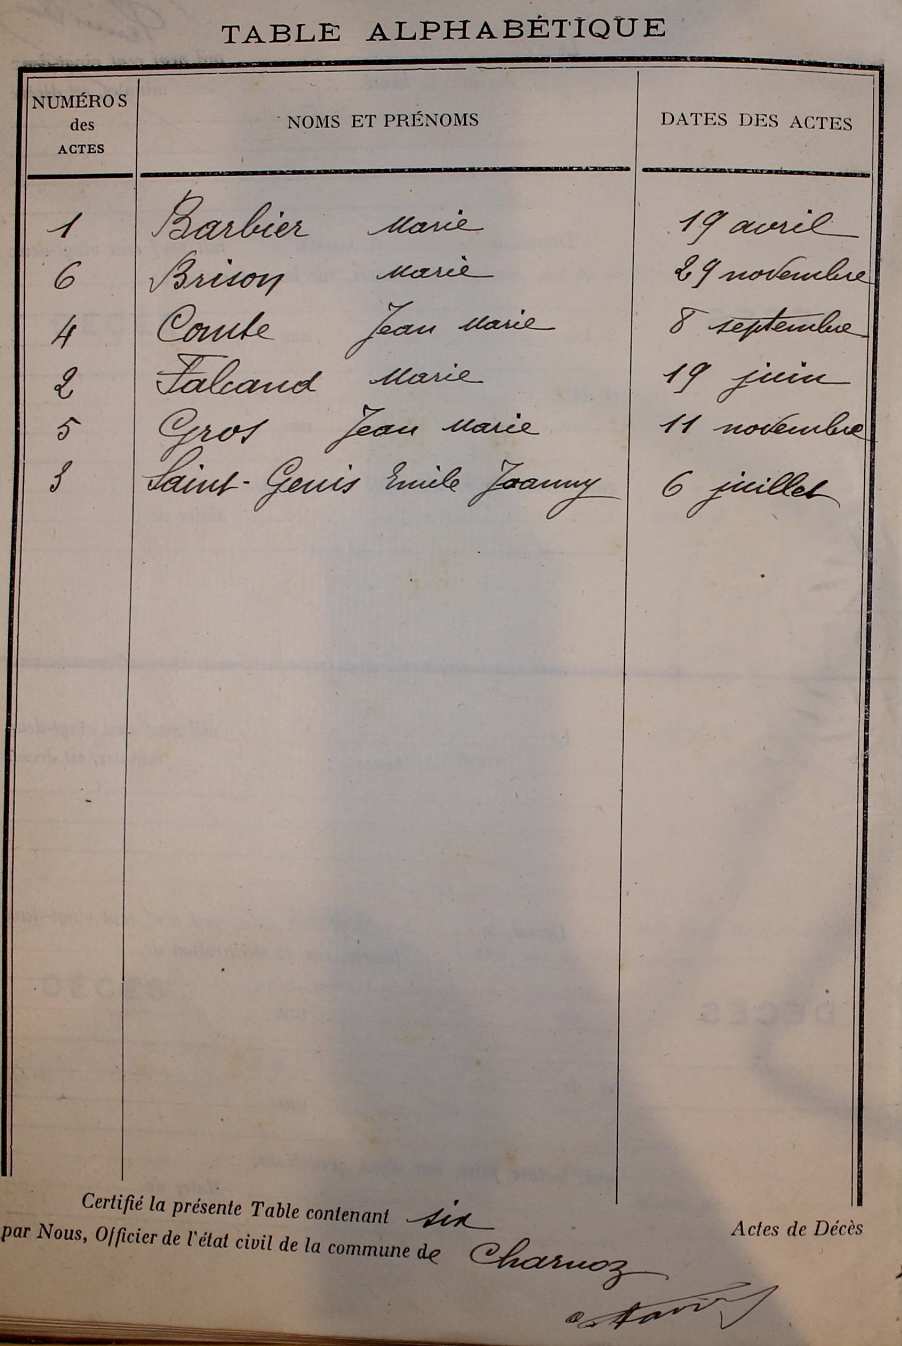 TABLE ALPHABÉTIQUE
NUMÉROS des ACTES NOMS ET PRÉNOMS DATES DES ACTES
1 Barbier Marie 19 avril
6 Brison Marie 29 novembre
4 Comte Jean Marie 8 septembre
2 Falcand Marie 19 juin
5 Gros Jean Marie 11 novembre
3 Saint-Genis Emile Joanny 6 juillet
DÉCÈS
Certifié la présente Table contenant six Actes de Décès
par Nous, Officier de l'état civil de la commune de Charnoz